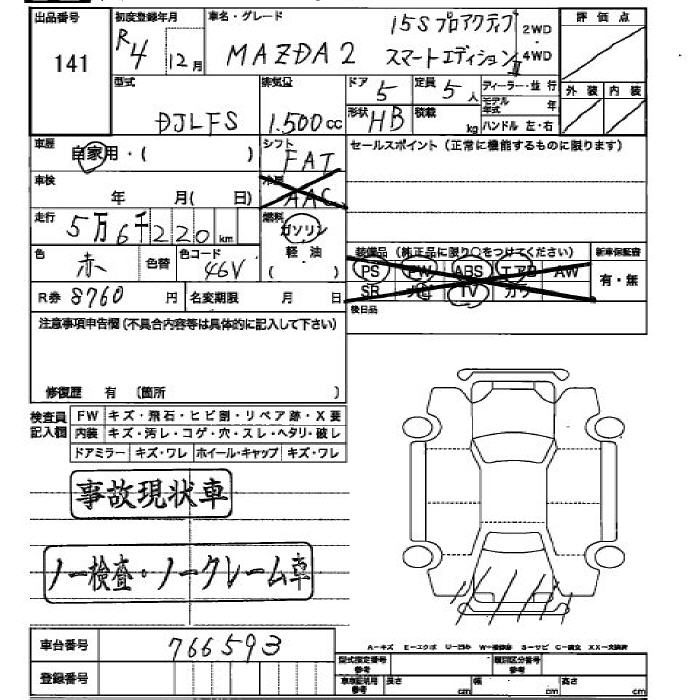 出品番号 初度登録年月 車名・グレード 評価点
141 R4 12月 MAZDA2 15S プロアクティブ スマートエディションⅡ 2WD・4WD
型式 排気量 ドア 定員 ディーラー・並行 外装 内装
DJLFS 1.500cc 5 5人 モデル年式 年
形状 HB 積載 kg ハンドル 左・右
車歴 自家用・( ) シフト セールスポイント(正常に機能するものに限ります)
FAT
車検 年 月( 日) 冷房 AAC
走行 5万6千220km 燃料 ガソリン
軽・油
( )
色 赤 色替 色コード 46V
装備品(純正品に限り○をつけてください) 新車保証書
PS PW ABS エアB AW 有・無
SR ナビ TV カワ
R券 8760円 名変期限 月 日
後日品
注意事項申告欄(不具合内容等は具体的に記入して下さい)
修復歴 有 〔箇所 〕
検査員記入欄 FW キズ・飛石・ヒビ割・リペア跡・X要
内装 キズ・汚レ・コゲ・穴・スレ・ヘタリ・破レ
ドアミラー キズ・ワレ ホイール・キャップ キズ・ワレ
事故現状車
ノー検査・ノークレーム車
A−キズ E−エクボ U−凹み W−補修跡 S−サビ C−腐食 XX−交換済
車台番号 766593
登録番号
型式指定番号 参考 類別区分番号 参考
車車証明用 参考 長さ cm 幅 cm 高さ cm